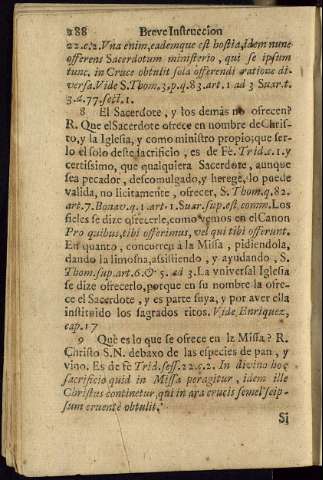 288 Breve Instruccion
22.c.2. Vna enim, eademque est hostia, idem nunc
offerens Sacerdotum ministerio, qui se ipsum
tunc, in Cruce obtulit sola offerendi ratione di-
versa. Vide S. Thom. 3. p. q. 83. art. 1 ad 3 Suar. t.
3. d. 77. sect. 1.
8 El Sacerdote, y los demàs no ofrecen?
R. Que el Sacerdote ofrece en nombre de Chris-
to, y la Iglesia, y como ministro propio; que ser-
lo el solo deste sacrificio, es de Fè. Trid. c. 1. y
certissimo, que qualquiera Sacerdote, aunque
sea pecador, descomulgado, y herege, lo puede
valida, no licitamente, ofrecer, S. Thom. q. 82.
art. 7. Bonav. q. 1 art. 1. Suar. sup. est. comm. Los
fieles se dize ofrecerle, como vemos en el Canon
Pro quibus, tibi offerimus, vel qui tibi offerunt.
En quanto, concurren à la Missa, pidiendola,
dando la limosna, assistiendo, y ayudando, S.
Thom. sup. art. 6. & 5. ad 3. La vniversal Iglesia
se dize ofrecerlo, porque en su nombre la ofre-
ce el Sacerdote, y es parte suya, y por aver ella
instituido los sagrados ritos. Vide Enriquez,
cap. 17
9 Què es lo que se ofrece en la Missa? R.
Christo S.N. debaxo de las especies de pan, y
vino. Es de Fè Trid. sess. 22. c. 2. In divino hoc
sacrificio quid in Missa peragitur, idem ille
Christus continetur, qui in ara crucis semel seip-
sum cruentè obtulit.
Si